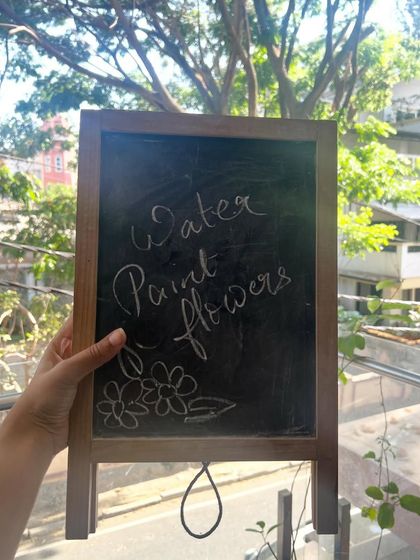 Water
Paint
flowers